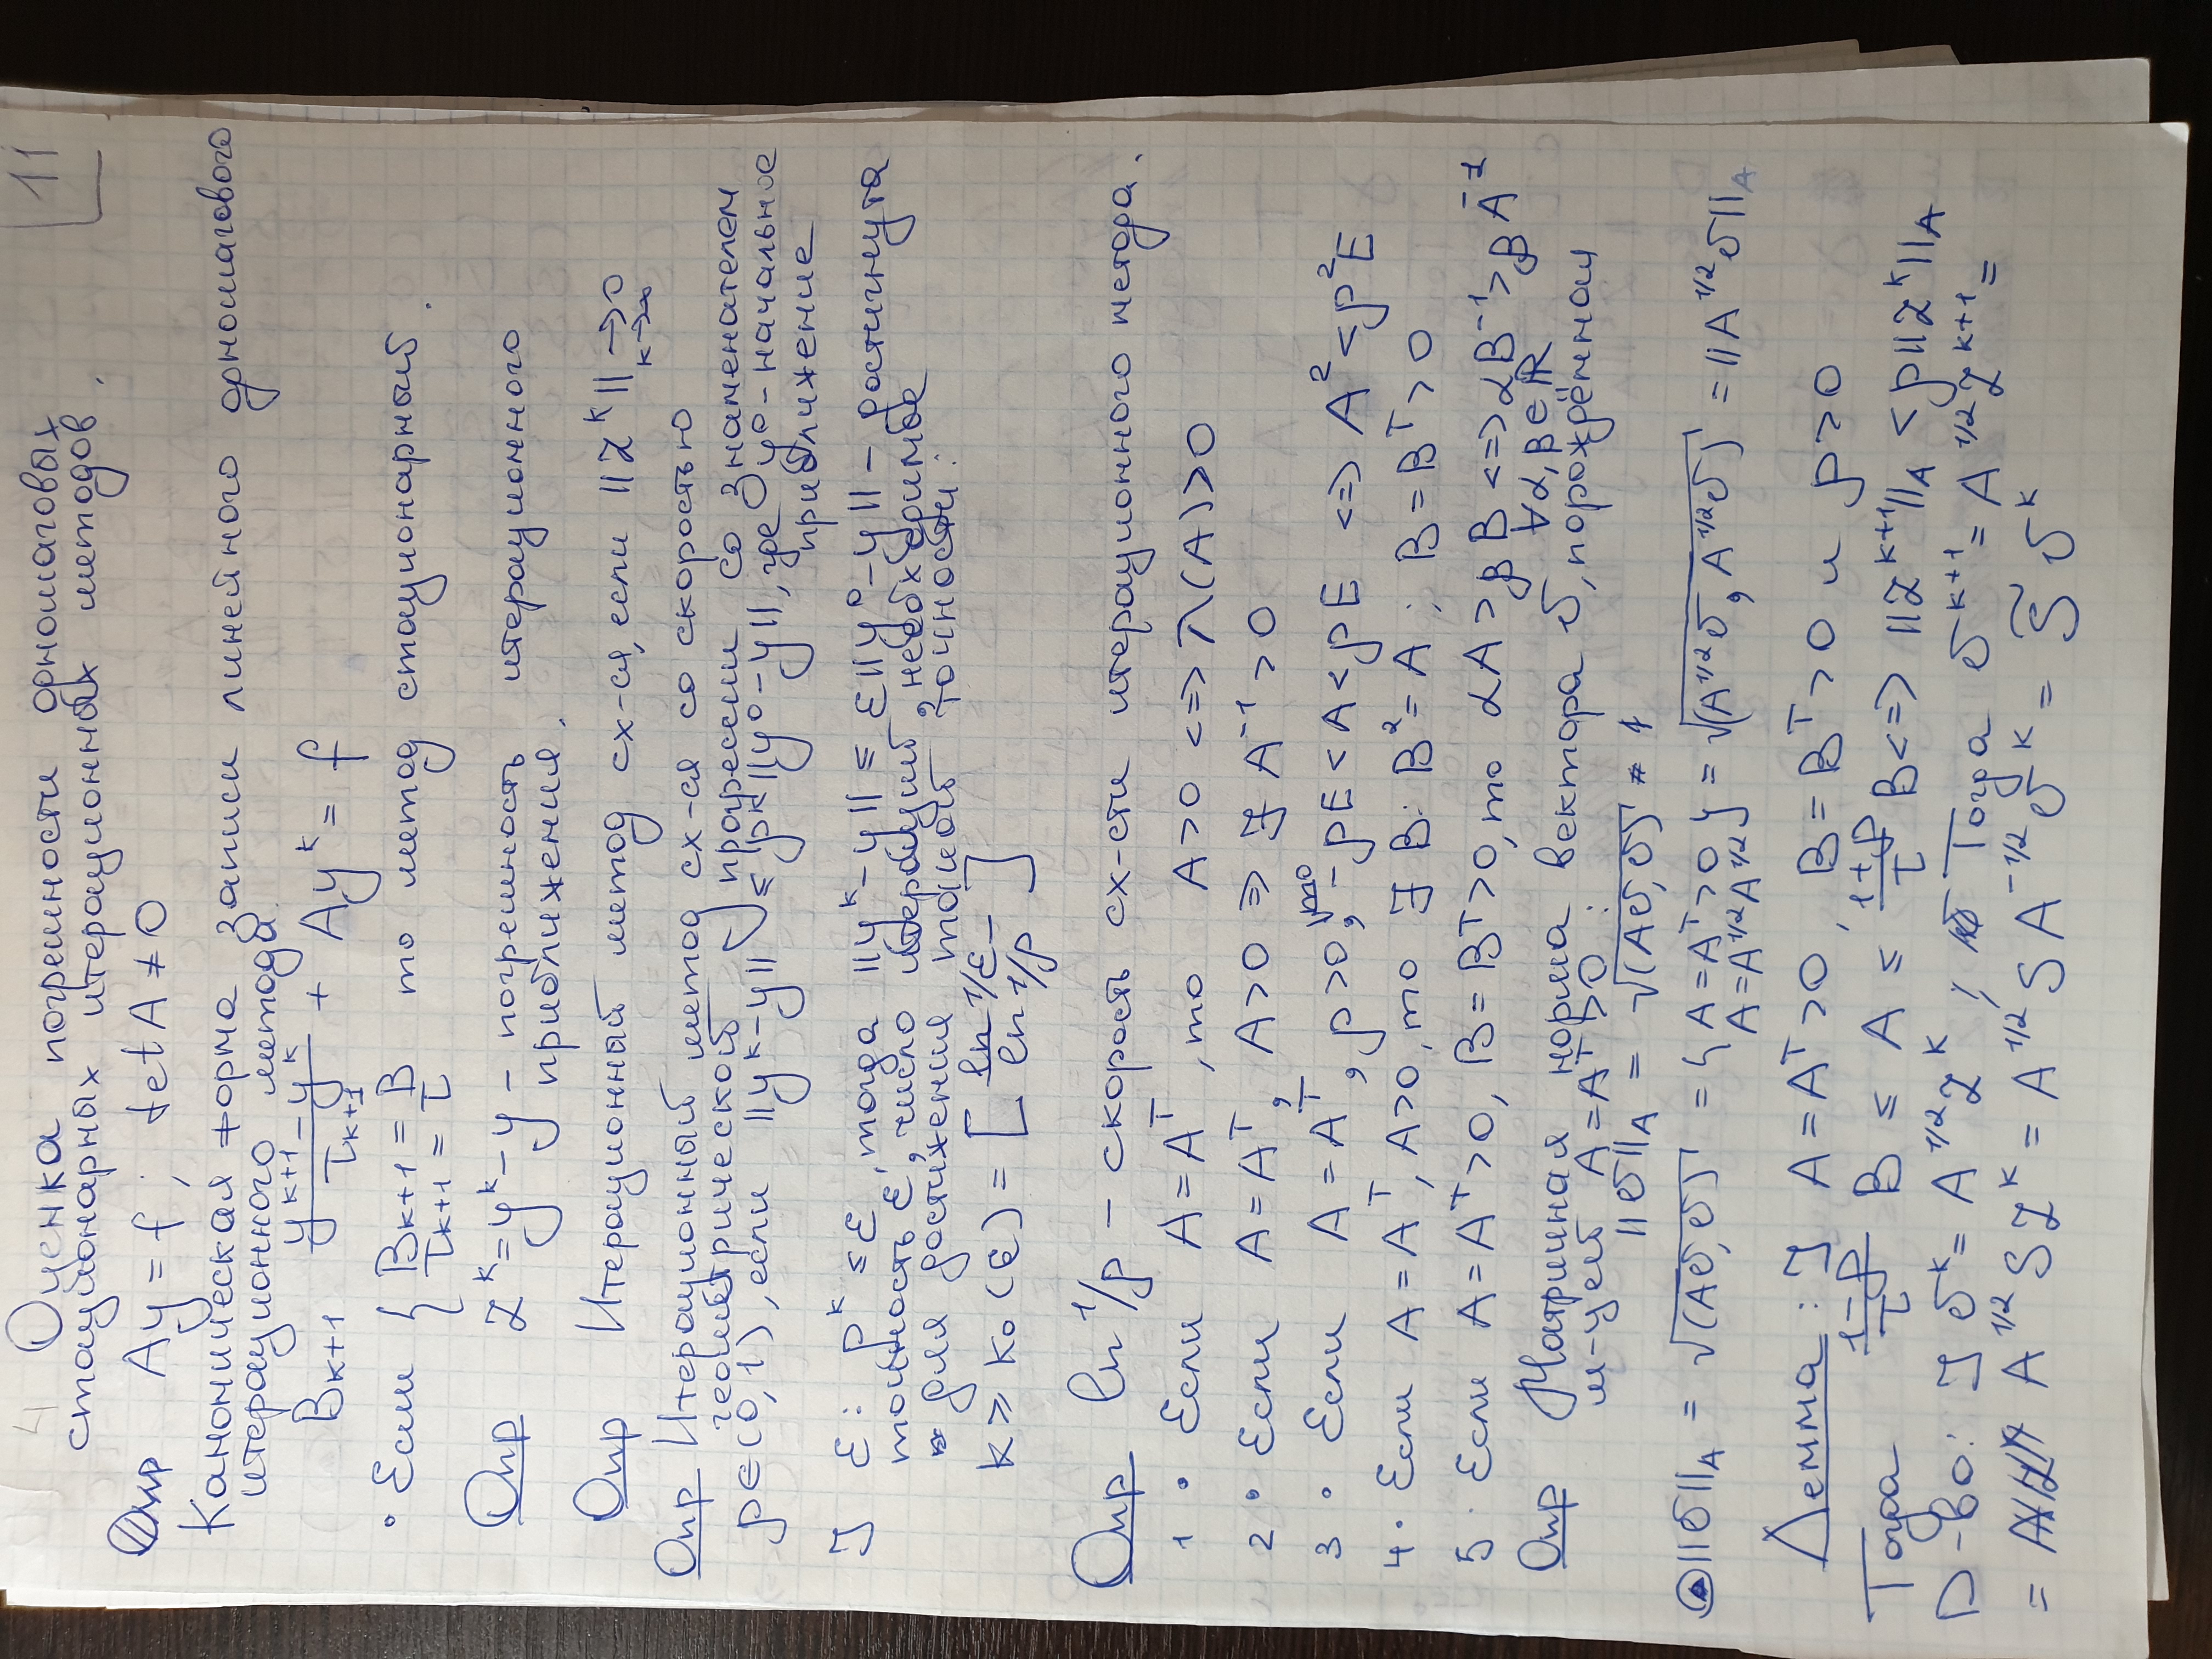 11
4 Оценка погрешности одношаговых
стационарных итерационных методов.
Опр Ay = f ; det A ≠ 0
Каноническая форма записи линейного одношагового
итерационного метода
B_{k+1} \frac{y^{k+1} - y^k}{τ_{k+1}} + Ay^k = f
• Если { B_{k+1} = B τ_{k+1} = τ то метод стационарный.
Опр z^k = y^k - y - погрешность итерационного
приближения.
Опр Итерационный метод сх-ся, если ||z^k|| →_{k→∞} 0
Опр Итерационный метод сх-ся со скоростью
геометрической прогрессии со знаменателем
ρ ∈ (0, 1), если ||y^k - y|| ≤ ρ^k ||y^0 - y||, где y^0 - начальное
приближение
] ε: ρ^k ≤ ε, тогда ||y^k - y|| ≤ ε||y^0 - y|| - достигнута
точность ε, число итераций, необходимое
для достижения такой точности:
k ≥ k_0(ε) = [ \frac{ln 1/ε}{ln 1/ρ} ]
Опр ln 1/ρ - скорость сх-сти итерационного метода.
1 • Если A = A^T, то A > 0 <=> λ(A) > 0
2 • Если A = A^T, A > 0 => ∃ A^{-1} > 0
3 • Если A = A^T, ρ > 0, то -ρE < A < ρE <=> A^2 < ρ^2E
4 • Если A = A^T, A > 0, то ∃ B: B^2 = A ; B = B^T > 0
5 • Если A = A^T > 0, B = B^T > 0, то αA > βB <=> αB^{-1} > βA^{-1}
∀α, β ∈ R
Опр Матричная норма вектора σ, порождённая
м-цей A = A^T > 0 :
||σ||_A = √(Aσ, σ)
||σ||_A = √(Aσ, σ) = { A = A^T > 0 A = A^{1/2}A^{1/2} } = √(A^{1/2}σ, A^{1/2}σ) = ||A^{1/2}σ||_A
Лемма: ] A = A^T > 0, B = B^T > 0 и ρ > 0
Тогда \frac{1-ρ}{τ} B ≤ A ≤ \frac{1+ρ}{τ} B <=> ||z^{k+1}||_A < ρ||z^k||_A
Д-во: ] σ^k = A^{1/2} z^k / Тогда σ^{k+1} = A^{1/2} z^{k+1} =
= A^{1/2} S z^k = A^{1/2} S A^{-1/2} σ^k = S̃ σ^k